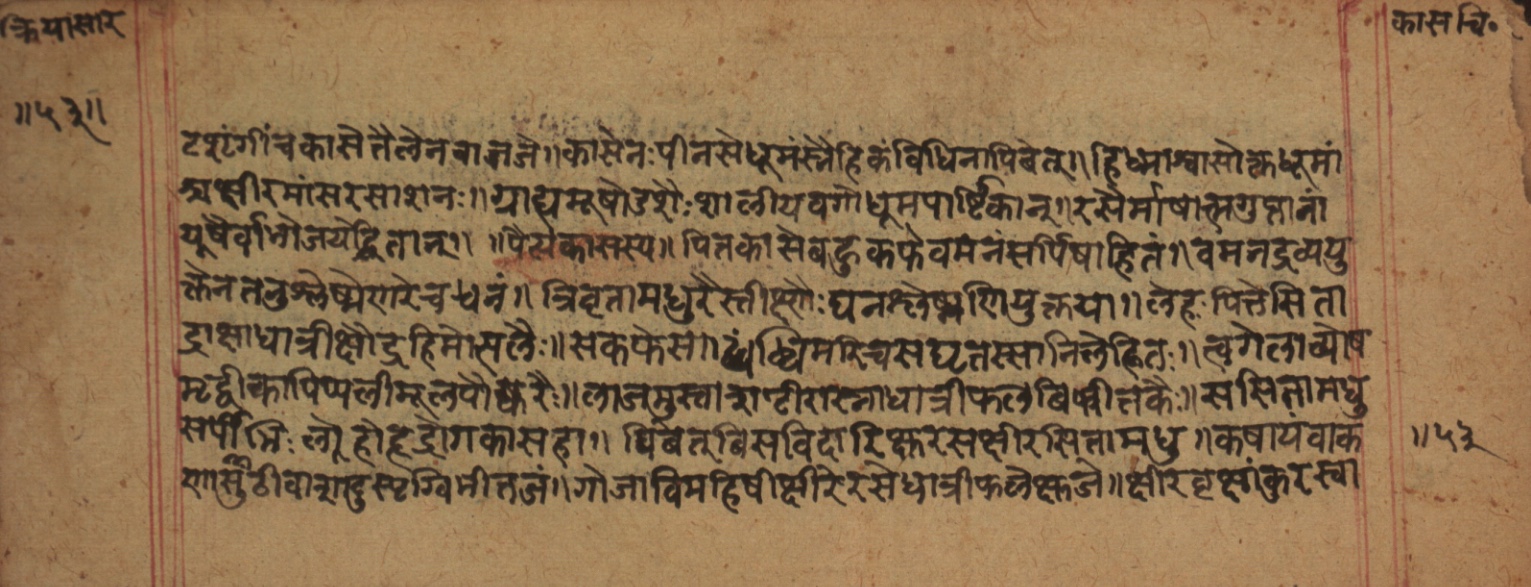 क्रियासार
कासचि०
॥५३॥
टशृंगींचकासेतैलेनवातजे॥कासेनःपीनसेधूमंस्नैहिकंविधिनापिबेत्॥हिध्माश्वासोक्तधूमां
श्चक्षीरमांसरसाशनः॥ग्राम्यानूपौदकैःशालीयवगोधूमषाष्टिकान्॥रसैर्माषात्मगुप्तानां
यूषैर्वाभोजयेद्धितान्॥ ॥पैत्त्यकासस्य॥पित्तकासेबहुकफेवमनंसर्पिषाहितं॥वमनद्रव्ययु
क्तेनतनुश्लेष्मेणरेचधनं॥त्रिवृतामधुरैस्तीक्ष्णैःघनश्लेष्मणियुक्तया॥लेहःपित्तेसिता
द्राक्षाधात्रीक्षौद्रहिमोत्पलैः॥सकफेसा मरिचसघृतस्सानिलेहितः॥त्वगेलाव्योष
मृद्वीकापिप्पलीमूलपौष्करैः॥लाजमुस्ताशठीरास्नाधात्रीफलबिभीतकैः॥ससितामधु
सर्पिर्भिःलेहोहृद्रोगकासहा॥पिबेत्बिसविदारिक्षुरसक्षीरसितामधु॥कषायंवाक
णासुंठी बिभीतजं॥गोजाविमहिषीक्षीरेरसेधात्रीफलेक्षुजे॥क्षीरवृक्षांकुरस्वा
॥५३